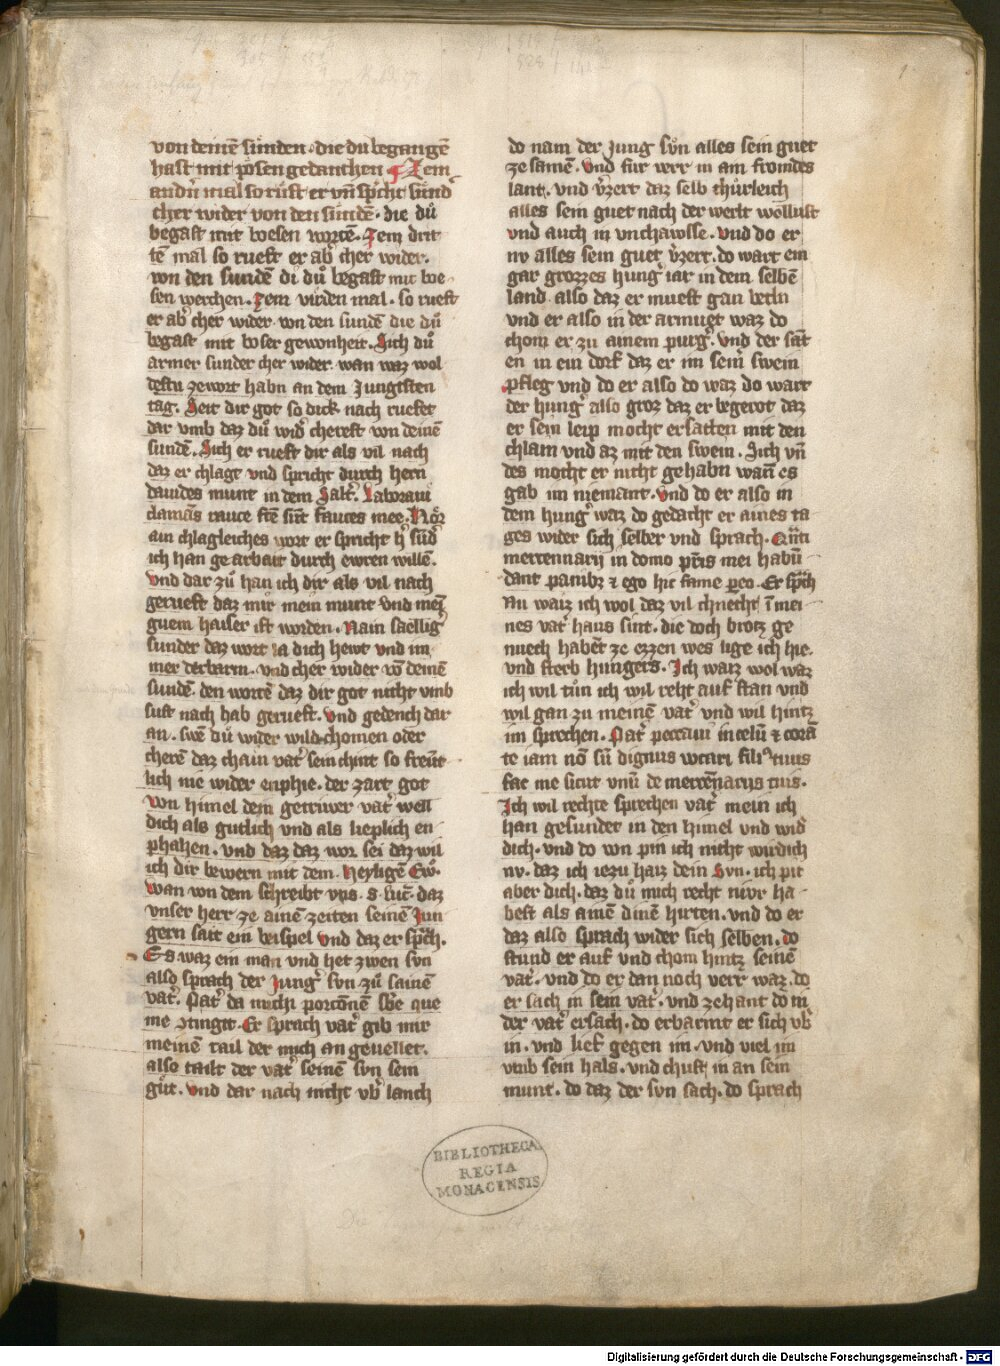 von deinē sünden · die du begangē
hast mit pösen gedanchen ¶ Zem
andn̄ mal so rüft er vn̄ sp̄cht sünd
cher wider von den sündē · die dů
begast mit boesen wortē · Zem drit
tē mal so rueft er ab̛ cher wider ·
von den sundē di dů begast mit boe
sen werchen · Zem virden mal · so rueft
er ab̛ cher wider von den sundē die dů
begast mit boser gewonheit · Sich dů
armer sunder cher wider wan waz wol
destu ze wort habn an dem Jungisten
tag · Seit dir got so dick nach rueffet
dar vmb daz dů wid̛ cherest von deinē
sundē · Sich er rueft dir als vil nach
daz er chlagt vnd spricht durch hern
dauides munt in dem Salt̛ · Laboraui
clamās rauce fc̄e sūt fauces mee · Hör
ain chlagleiches wort er spricht h̛ sūd̛
ich han gearbait durch ewren willē ·
vnd dar zů han ich dir als vil nach
gerueft daz mir mein munt vnd mein
guem haiser ist worden · Nain saellig̛
sunder daz wort la dich hewt vnd im
mer derbarm · vnd cher wider vō deinē
sundē den wortē daz dir got nicht vmb
sust nach hab gerueft · vnd gedench dar
an · swē dů wider wild chomen oder
cherē daz chain vat̛ sein chint so freūt
lich nie wider enphie · der zart got
von himel dem getriwer vat̛ well
dich als gutlich vnd als lieplich en
phahen · vnd daz daz wor sei daz wil
ich dir bewern mit dem heyligē Ew̄ ·
wan von dem schreibt vns · s · luc̄ · daz
vnser herr ze ainē zeiten seinē Jun
gern sait ein beispel vnd daz er sp̄ch ·
Es waz ein man vnd het zwen svn
also sprach der Jung̛ svn zů sainē
vat̛ · Pat̛ da michi porcōnē sb̄e que
me ꝯtingit · Er sprach vat̛ gib mir
meinē tail der mich an geuellet ·
also tailt der vat̛ seinē svn sein
gůt · vnd dar nach nicht vb̛ lanch
do nam der Jung sůn alles sein guet
ze samē · vnd fur verr in am fromdes
lant · vnd v̛zert daz selb thůrleich
alles sein guet nach der werlt wollust
vnd auch in vnchawsse · vnd do er
nv alles sein guet v̛zert · do wart ein
gar grozzes hung̛ iar in dem selbē
land also daz er muest gan betln
vnd er also in der armuet waz do
chom er zu ainem purg̛ · vnd der sāt
en in ein dorf daz er im seinr swein
pfleg vnd do er also do waz do wart
der hung̛ also groz daz er begerot daz
er sein leip mocht ersatten mit den
chlain vnd az mit den swein · Sich vn̄
des mocht er nicht gehabn wan̄ es
gab im niemant · vnd do er also in
dem hung̛ waz do gedacht er aines ta
ges wider sich selber vnd sprach · Quāti
mercennarij in domo pr̄is mei habū
dant panibz et ego hic fame peo · Er sp̄ch
Nu waiz ich wol daz vil chnecht ī mei
nes vat̛ haus sint · die doch brotz ge
nuech habēt ze ezzen wes lige ich hie ·
vnd sterb hungers · Ich waiz wol waz
ich wil tůn ich wil reht auf stan vnd
wil gan zu meinē vat̛ vnd wil hintz
im sprechen · Pat̛ peccaui in celū et corā
te iam nō sū dignus vocari filiꝰ tuus
fac me sicut vnū de mercēnarijs tuis ·
Ich wil rechte sprechen vat̛ mein ich
han gesundet in den himel vnd wid̛
dich · vnd do von pin ich nicht wirdich
nv · daz ich iezu haiz dein Svn · ich pit
aber dich · daz dů mich recht nivr ha
best als ainē dinē hirten · vnd do er
daz also sprach wider sich selben · do
stund er auf vnd chom hintz seinē
vat̛ · vnd do er dan noch verr waz · do
er sach in sein vat̛ · vnd zehant do in
der vat̛ ersach · do erbarmt er sich vb̛
in · vnd lief gegen im · vnd viel im
vmb sein hals · vnd chust in an sein
munt · do daz der svn sach · do sprach
BIBLIOTHECA
REGIA
MONACENSIS
Digitalisierung gefördert durch die Deutsche Forschungsgemeinschaft - DFG